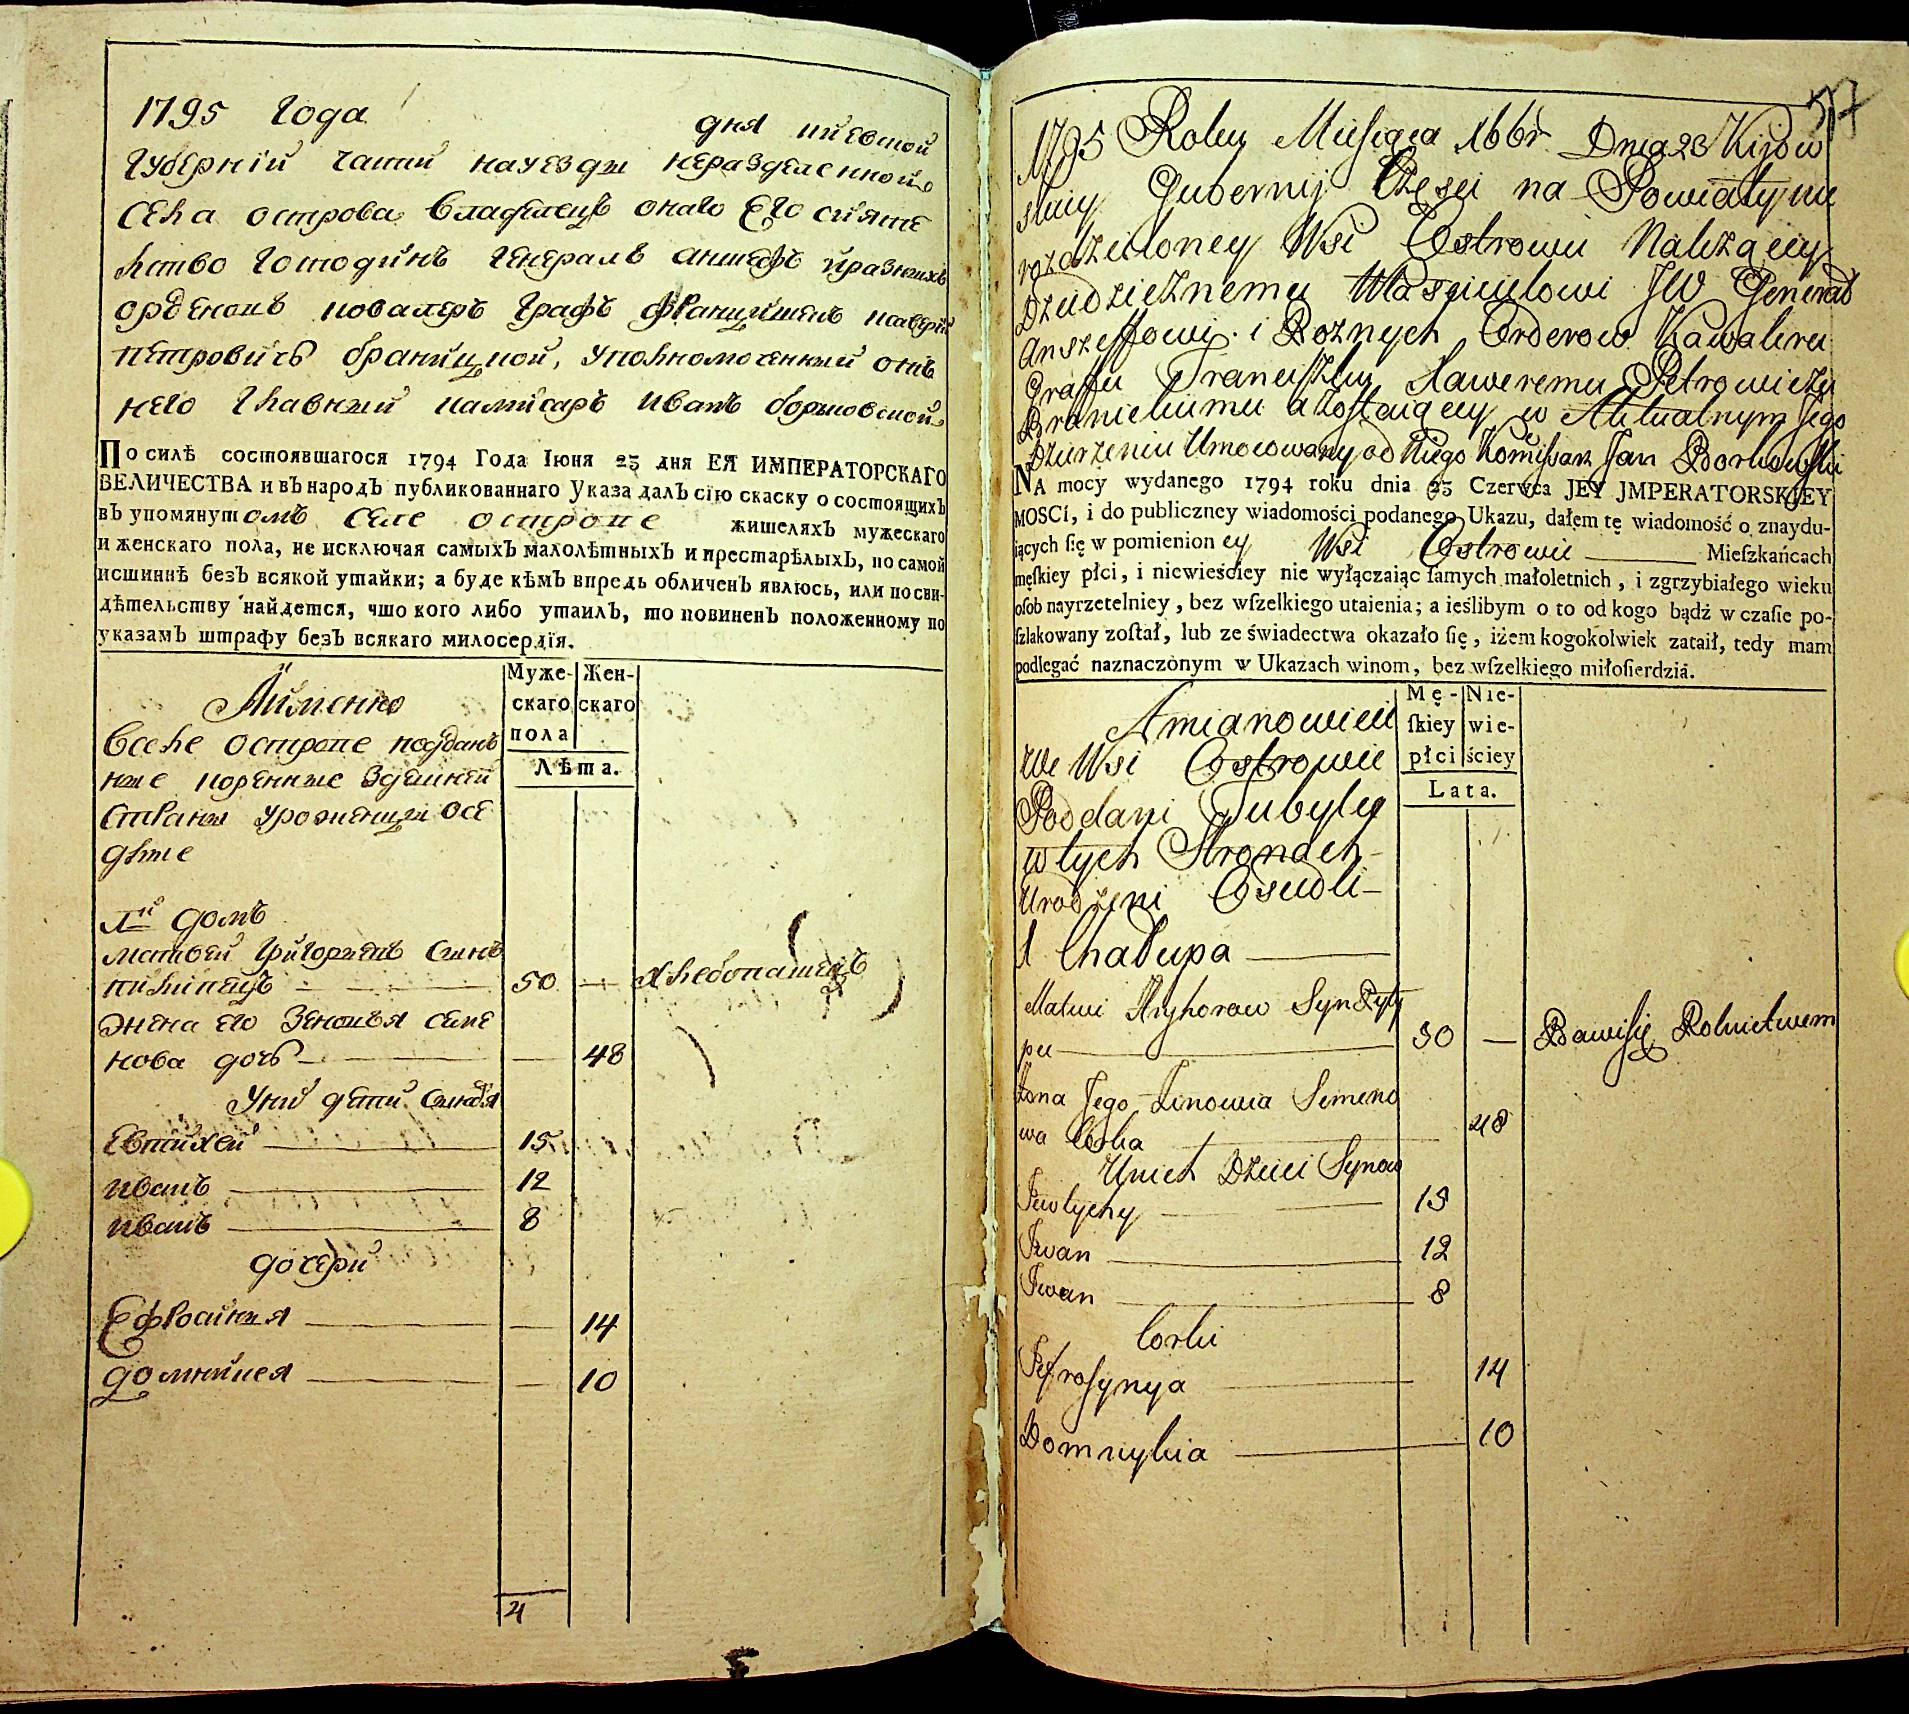 1795 Года
дня киевской
Губернїи части науезды неразделенной
села острова владелецъ онаго Его сияте
лство Господинъ Генералъ аншефъ ѝразныхъ
орденовъ кавалеръ Графъ Францишекъ
петровичъ браницкой, уполномоченный отъ
него главный камисаръ Иванъ борковской
По силѣ состоявшагося 1794 Года Іюня 23 дня ЕЯ ИМПЕРАТОРСКАГО
ВЕЛИЧЕСТВА и въ народъ публикованнаго Указа далъ сїю скаску о состоящихъ
въ упомянутомъ селе острове жителяхъ мужескаго
и женскаго пола, не исключая самыхъ малолѣтныхъ и престарѣлыхъ, по самой
исшиннѣ безъ всякой утайки; а буде кѣмъ впредь обличенъ явлюсь, или по сви-
дѣтельству найдется, чшо кого либо утаилъ, то повиненъ положенному по
указамъ штрафу безъ всякаго милосердїя.
Аймѣнно
Муже-
скаго
пола
Жен-
скаго
Лѣта.
вселе острове поддан
ные коренные здешней
страны уроженцы осе
длые
1й домъ
матвей григорьевъ синъ
50 — хлебопашецъ
жена его Зеновья семе
нова дочь — — 48
Уних дети синовя
Евтихей — 15
иванъ — 12
иванъ — 8
дочери
Ефросиния — — 14
домникея — — 10
4
57
1795 Roku Miesiąca Xbbr. Dnia 23 Kijow
skiey Gubernij Części na Powiaty nie
rozdzieloney Wsi Ostrowu Nalezącey
Dziedzicznemu Włascicielowi JW Generał
Anszeffowi i Roznych Orderow Kawalerowi
Graffu Franciszku Xaweremu Petrowiczu
Branickiemu a zostaiącey w Aktualnym Jego
Dzierzeniu Umocowany od Niego Komissarz Jan Borkowski
NA mocy wydanego 1794 roku dnia 23 Czerwca JEY JMPERATORSKIEY
MOSCI, i do publiczney wiadomości podanego Ukazu, dałem tę wiadomość o znaydu-
iących ſię w pomienioney Wsi Ostrowie Mieſzkańcach
męſkiey płci, i niewieściey nie wyłączaiąc ſamych małoletnich, i zgrzybiałego wieku
oſob nayrzetelniey, bez wſzelkiego utaienia; a ieślibym o to od kogo bądź w czaſie po-
ſzlakowany zoſtał, lub ze świadectwa okazało ſię, iżem kogokolwiek zataił, tedy mam
podlegać naznaczonym w Ukazach winom, bez wſzelkiego miłoſierdzia.
Amianowicie
Mę-
ſkiey
płci
Nie-
wie-
ściey
Lata.
We Wsi Ostrowie
Poddani Tubylcy
w tych Stronach
Urodzeni Osiedli
1 Chałupa
Matwi Hryhorow Syn
50 — Bawi się Rolnictwem
Zona Jego Zinowia Semeno
wa Corka 48
Unich Dzieci Synow
Jewtychy — 15
Jwan — 12
Jwan — 8
Corki
Jefrosynya — 14
Domnykia — 10